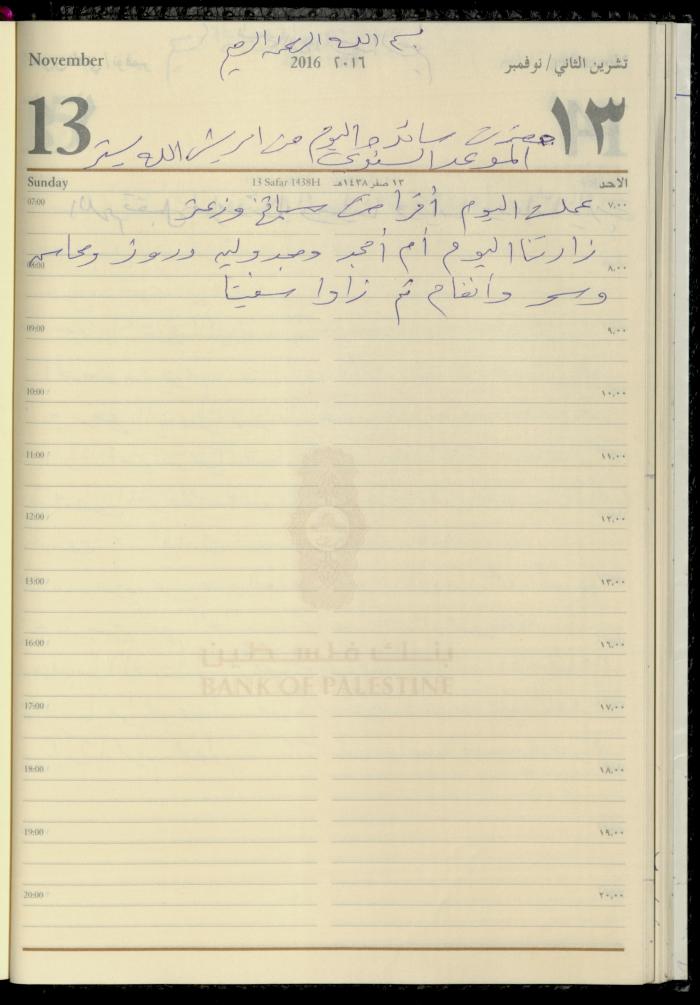 بسم الله الرحمن الرحيم
November 2016 ٢٠١٦ تشرين الثاني / نوفمبر
13 ١٣
حضرت سائدة اليوم من الله يستر
الموعد السنوي
Sunday 13 Safar 1438H ١٣ صفر ١٤٣٨هـ الأحد
07:00 ٧,٠٠
عملت اليوم أقراص سبانخ وزعتر
زارتنا اليوم أم أمجد ومجدولين وروز ومحاسن
08:00 ٨,٠٠
وسحر وأنغام ثم زاوا سفيتا
09:00 ٩,٠٠
10:00 ١٠,٠٠
11:00 ١١,٠٠
12:00 ١٢,٠٠
13:00 ١٣,٠٠
16:00 ١٦,٠٠
بنك فلسطين
BANK OF PALESTINE
17:00 ١٧,٠٠
18:00 ١٨,٠٠
19:00 ١٩,٠٠
20:00 ٢٠,٠٠